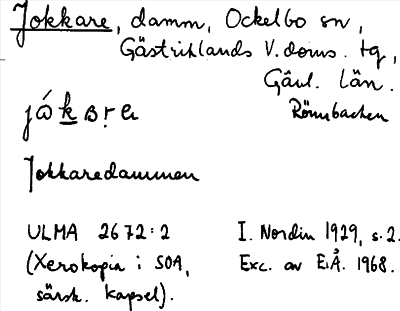 Jokkare, damm, Ockelbo sn,
Gästriklands V. doms. tg,
Gävl. län.
Rönnbacken
Jokkaredammen
ULMA 2672:2
(Xerokopia i SOA,
särsk. kapsel).
I. Nordin 1929, s. 2.
Exc. av E.Å. 1968.